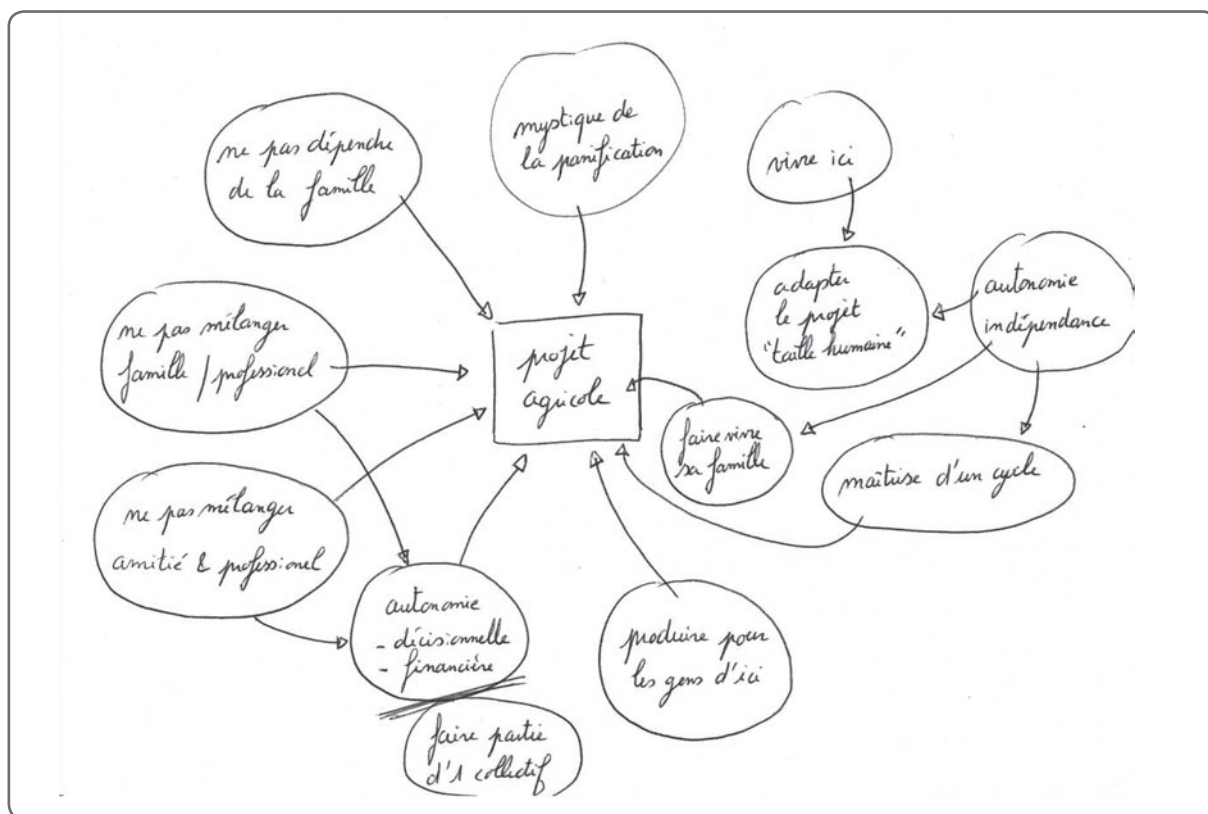 mystique de
la panification
ne pas dépendre
de la famille
vivre ici
adapter
le projet
"taille humaine"
autonomie
indépendance
ne pas mélanger
famille / professionel
projet
agricole
faire vivre
sa famille
maîtrise d'un cycle
ne pas mélanger
amitié & professionel
autonomie
- décisionnelle
- financière
produire pour
les gens d'ici
faire partie
d'1 collectif